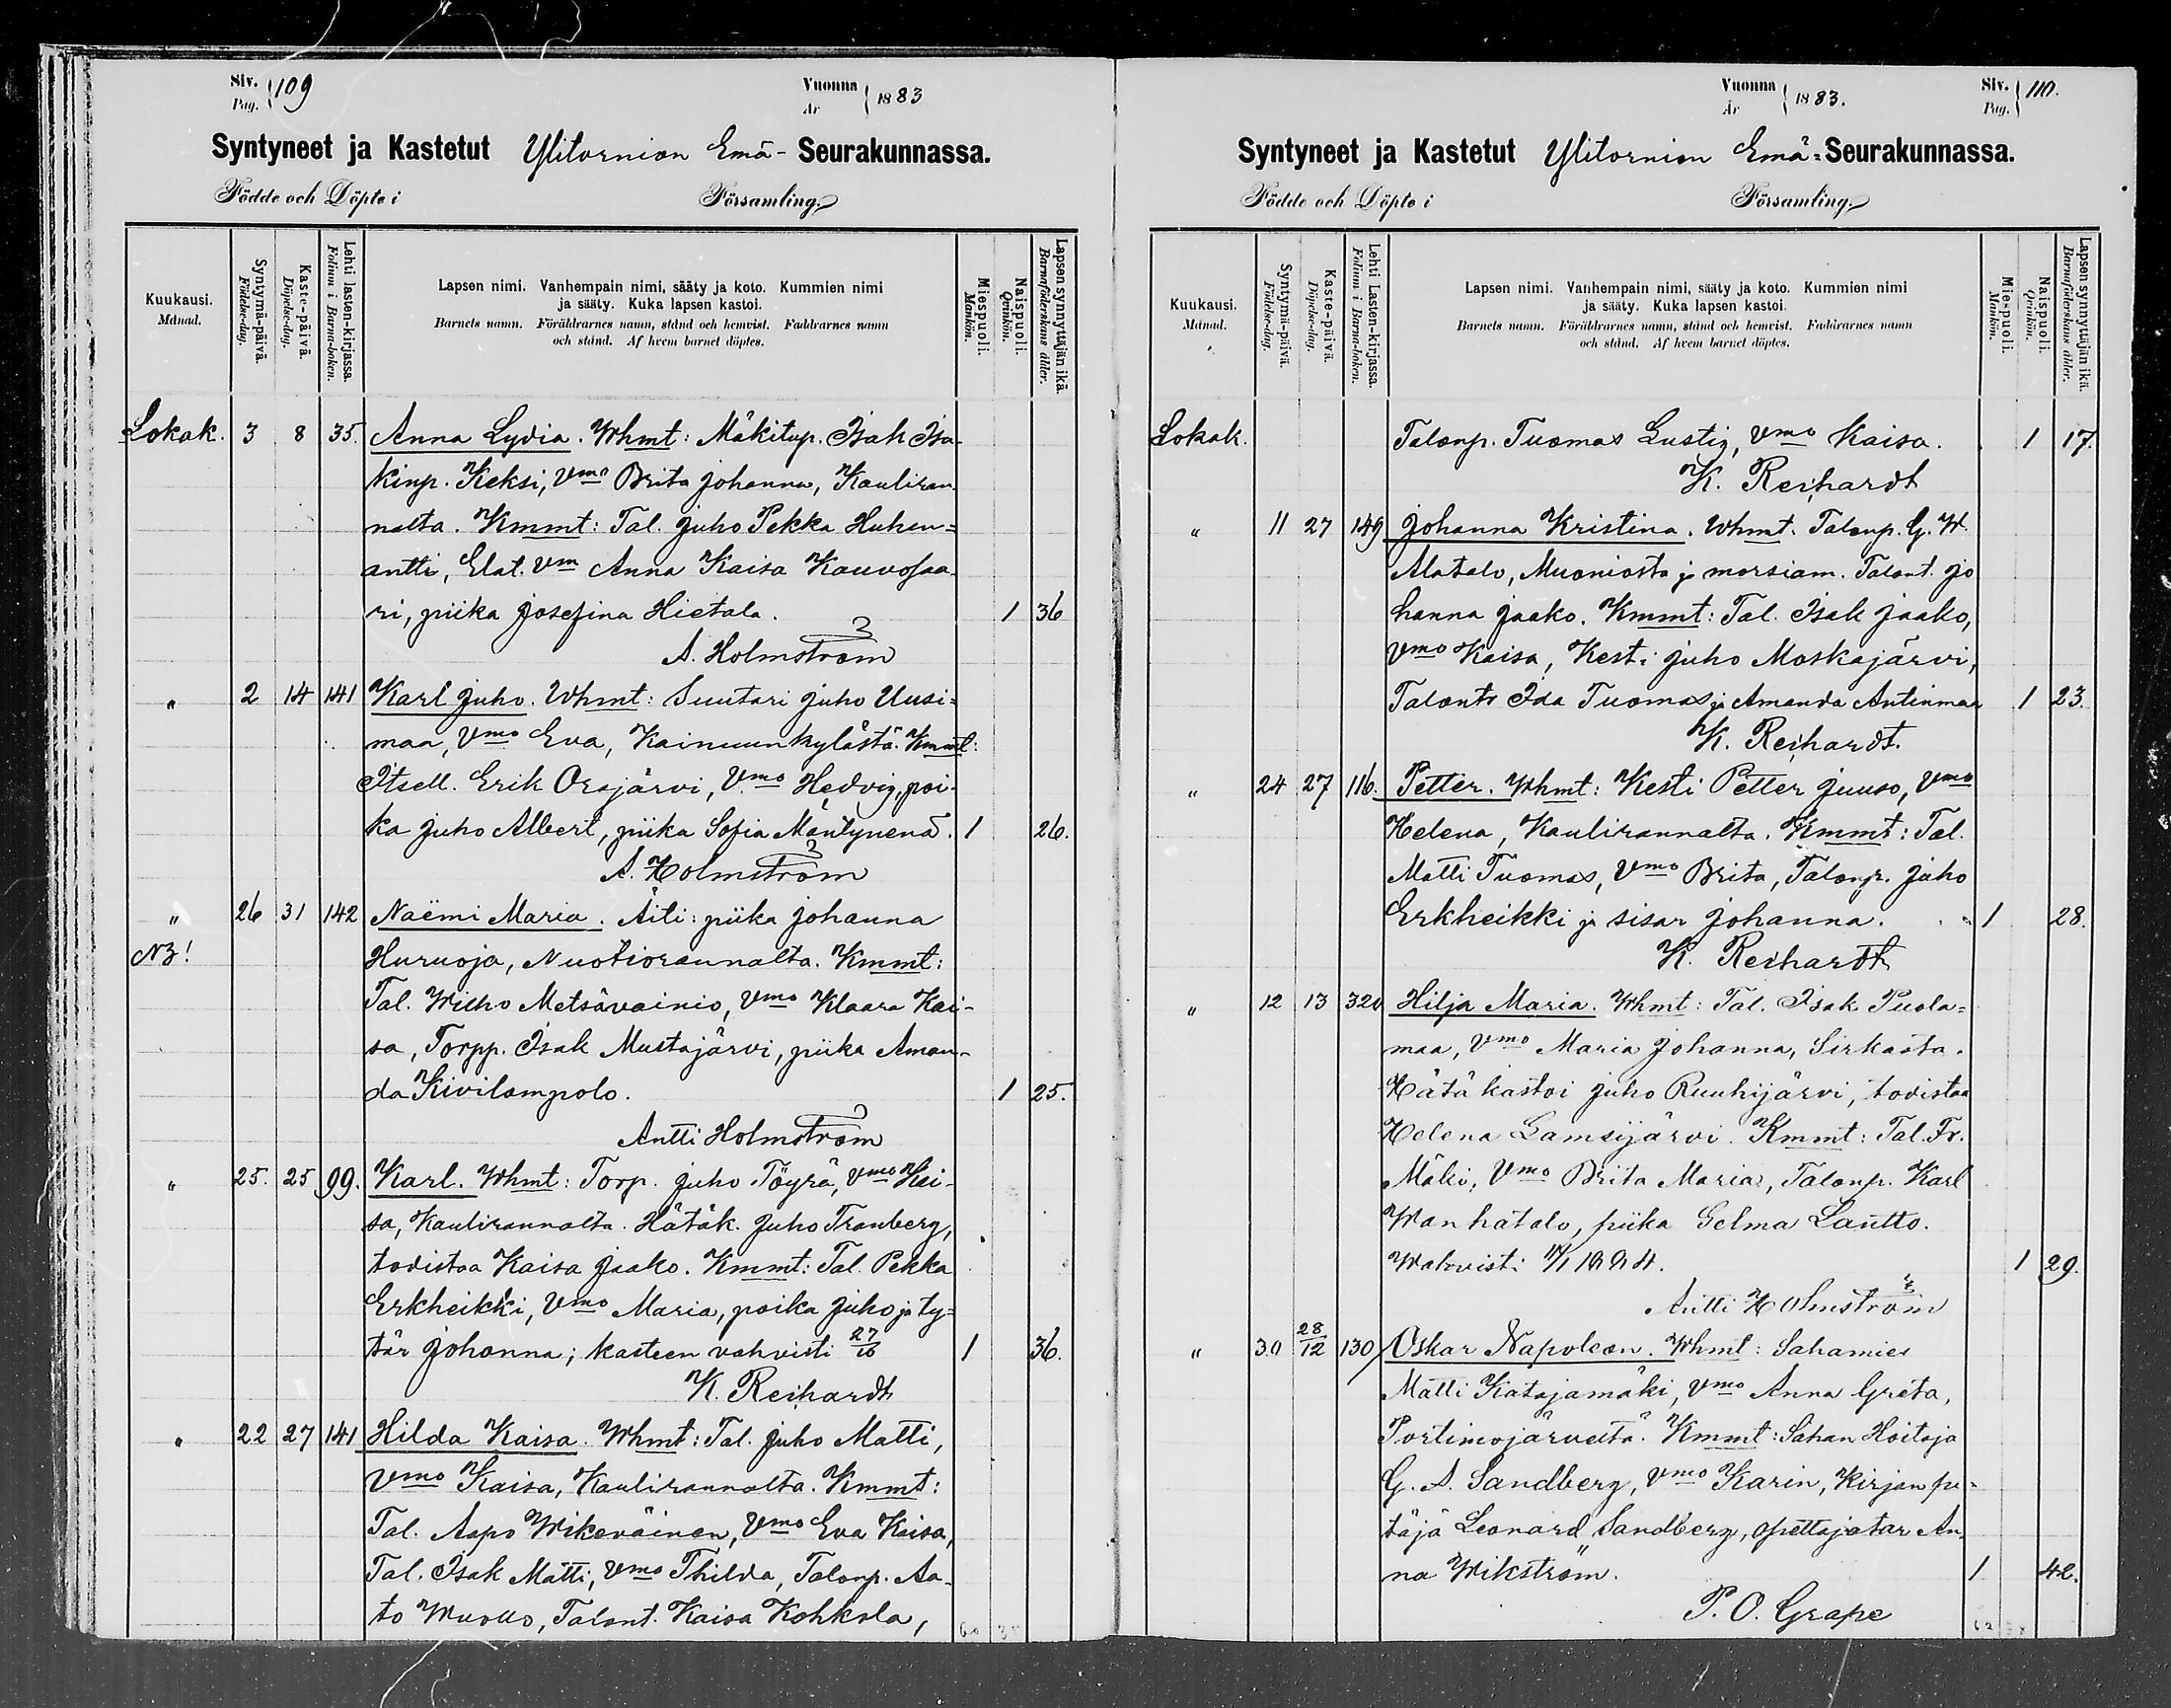 Siv. Pag. 109
Vuonna År 1883
Syntyneet ja Kastetut Ylitornion Emä-Seurakunnassa.
Födde och Döpte i Församling.
Kuukausi. Månad.
Syntymä-päivä. Födelse-dag.
Kaste-päivä. Döpelse-dag.
Lehti lasten-kirjassa. Folium i Barna-boken.
Lapsen nimi. Vanhempain nimi, sääty ja koto. Kummien nimi
ja sääty. Kuka lapsen kastoi.
Barnets namn. Föräldrarnes namn, stånd och hemvist. Faddrarnes namn
och stånd. Af hvem barnet döptes.
Miespuoli. Mankön.
Naispuoli. Qvinkön.
Lapsensynnyttäjän ikä. Barnaföderskans ålder.
Lokak. 3 8 35. Anna Lydia. Whmt: Mäkitup. Isak Isa-
kinp. Keksi, Vmo Brita Johanna, Kauliran-
nalta. Kmmt: Tal. Juho Pekka Huhan=
antti, Elat. Vm Anna Kaisa Kauvosaa-
ri, piika Josefina Hietala. 1 36
A. Holmström
" 2 14 141 Karl Juho. Whmt: Suutari Juho Uusi=
maa, Vmo Eva, Kainuunkylästä. Kmmt:
Itsell. Erik Orajärvi, Vmo Hedvig, poi-
ka Juho Albert, piika Sofia Mäntynenä. 1 26.
A. Holmström
" 26 31 142 Naëmi Maria. Äiti: piika Johanna
NB! Huruoja, Nuotiorannalta. Kmmt:
Tal. Wilho Metsävainio, Vmo Klaara Kai-
sa, Torpp. Isak Mustajärvi, piika Aman-
da Kivilompolo. 1 25.
Antti Holmström
" 25. 25 99. Karl. Whmt: Torp. Juho Töyrä, Vmo Kai-
sa, Kaulirannalta. Hätäk. Juho Tranberg,
todistaa Kaisa Jaako. Kmmt: Tal. Pekka
Erkheikki, Vmo Maria, poika Juho ja ty=
tär Johanna; kasteen vahvisti 27/10 1 36.
K. Reihardt
" 22 27 141 Hilda Kaisa. Whmt: Tal. Juho Matti,
Vmo Kaisa, Kaulirannalta. Kmmt:
Tal. Aapo Wikeväinen, Vmo Eva Kaisa,
Tal. Isak Matti, Vmo Thilda, Talonp. Aa-
to, Talont. Kaisa Kohkola,
Vuonna År 1883.
Siv. Pag. 110.
Syntyneet ja Kastetut Ylitornion Emä=Seurakunnassa.
Födde och Döpte i Församling.
Kuukausi. Månad.
Syntymä-päivä. Födelse-dag.
Kaste-päivä. Döpelse-dag.
Lehti Lasten-kirjassa. Folium i Barna-boken.
Lapsen nimi. Vanhempain nimi, sääty ja koto. Kummien nimi
ja sääty. Kuka lapsen kastoi.
Barnets namn. Föräldrarnes namn, stånd och hemvist. Faddrarnes namn
och stånd. Af hvem barnet döptes.
Miespuoli. Mankön.
Naispuoli. Qvinkön.
Lapsensynnyttäjän ikä. Barnaföderskans ålder.
Lokak. Talonp. Tuomas Lustig, Vmo Kaisa. 1 17.
K. Reihardt
" 11 27 149 Johanna Kristina. Whmt. Talonp. G. W.
Alatalo, Muoniosta ja morsiam. Talont. Jo
hanna Jaako. Kmmt: Tal. Isak Jaako,
Vmo Kaisa, Kesti Juho Moskajärvi,
Talontr Ida Tuomas ja Amanda Antinmaa 1 23.
K. Reihardt.
" 24 27 116. Petter. Whmt: Kesti Petter Juuso, Vmo
Helena, Kaulirannalta. Kmmt: Tal.
Matti Tuomas, Vmo Brita, Talonp. Juho
Erkheikki ja sisar Johanna. 1 28.
K. Reihardt
" 12 13 320 Hilja Maria. Whmt: Tal. Isak Puola=
maa, Vmo Maria Johanna, Sirkasta.
Hätä kastoi Juho Ruuhijärvi, todistaa
Helena Lamsijärvi. Kmmt: Tal. Fr.
Mäki, Vmo Brita Maria, Talonp. Karl
Wanhatalo, piika Selma Lantto.
Wahvisti 1 29.
Antti Holmström
" 30 28/12 130 Oskar Napoleon. Whmt: Sahamies
Matti Katajamäki, Vmo Anna Greta,
Portimojärveltä. Kmmt: Sahan Hoitaja
G. A. Sandberg, Vmo Karin, Kirjan pi-
täjä Leonard Sandberg, opettajatar An-
na Wikström. 1 42.
P. O. Grape